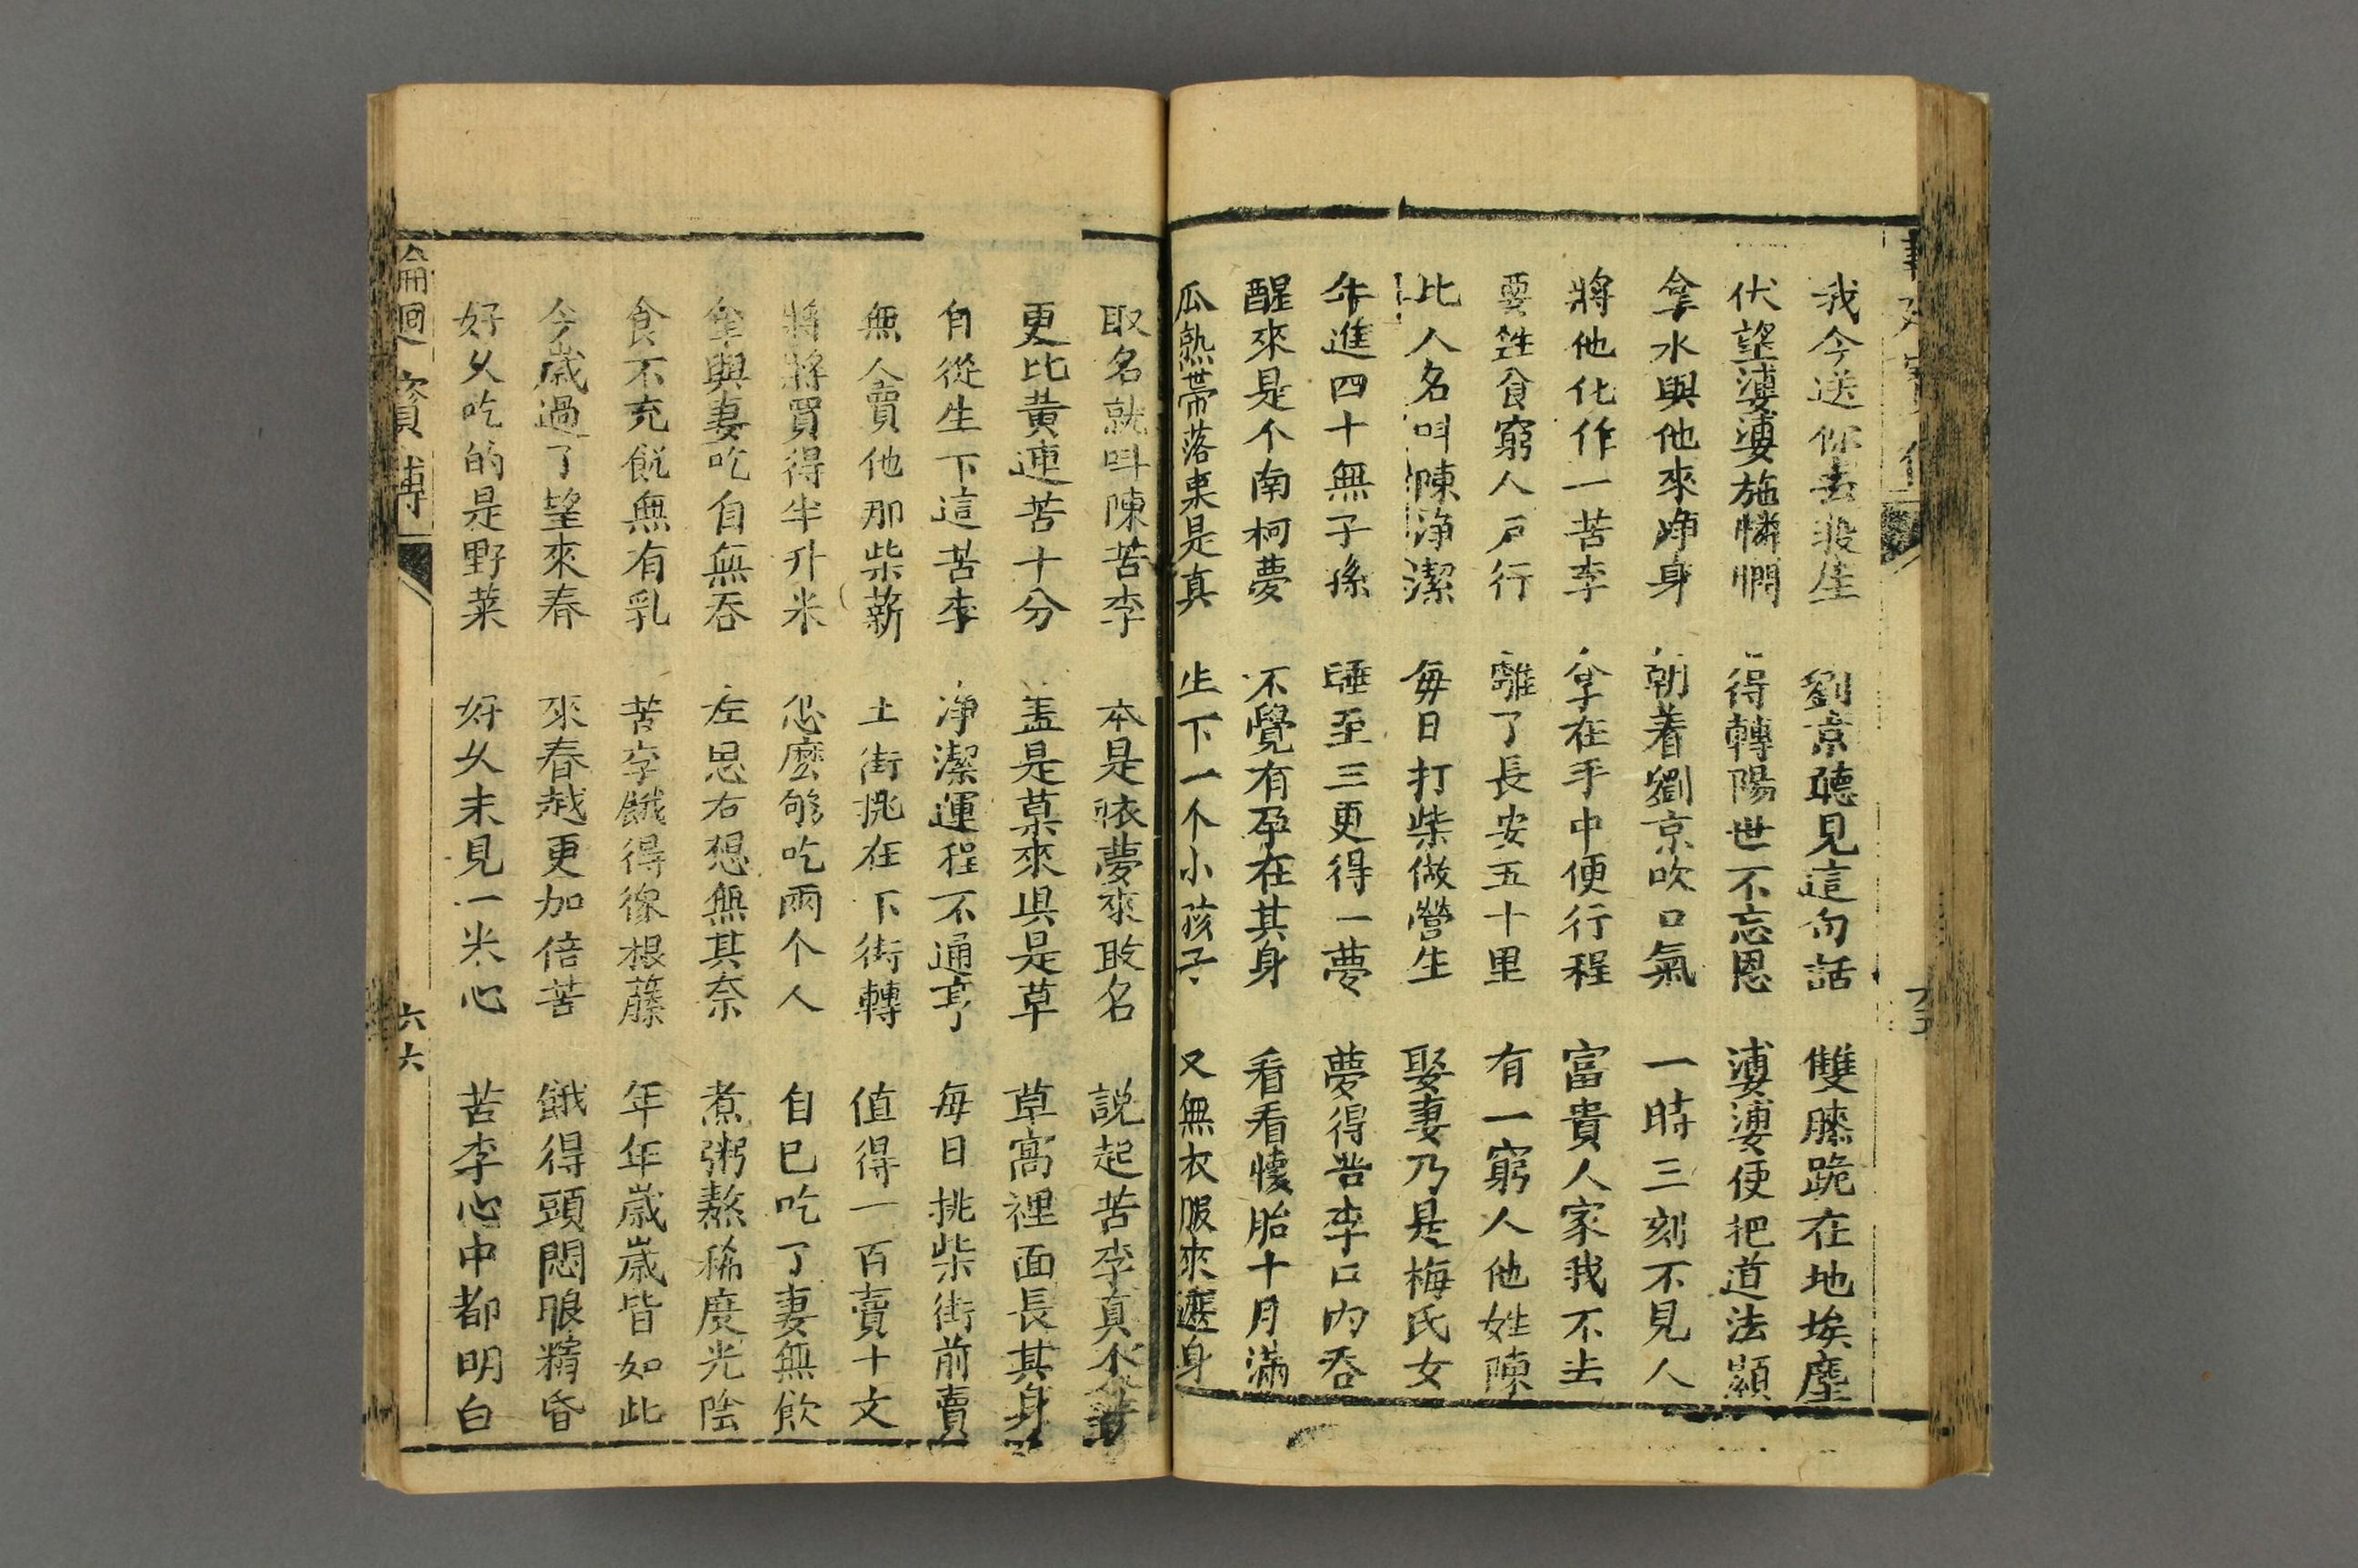 我今送你去投生 劉京聽見這句話 雙膝跪在地埃塵
伏望婆婆施憐憫 得轉陽世不忘恩 婆婆便把道法顯
拿水與他來净身 朝着劉京吹口氣 一時三刻不見人
將他化作一苦李 拿在手中便行程 富貴人家我不去
要 食窮人戶行 離了長安五十里 有一窮人他姓陳
此人名叫陳净潔 每日打柴做營生 娶妻乃是梅氏女
年進四十無子孫 睡至三更得一夢 夢得苦李口内吞
醒來是个南柯夢 不覺有孕在其身 看看懷胎十月滿
瓜熟蒂落果是真 生下一个小孩子 又無衣服來遮身
取名就呌陳苦李 本是依夢來取名 説起苦李真个苦
更比黄連苦十分 盖是草來俱是草 草窩裡面長其身
自從生下這苦李 净潔運程不通亨 每日挑柴街前賣
無人賣他那柴薪 上街挑在下街轉 值得一百賣十文
將將買得半升米 怎麽够吃兩个人 自已吃了妻無飲
拿與妻吃自無吞 左思右想無其奈 煮粥熬稀度光陰
食不充飢無有乳 苦李餓得像根藤 年年歲歲皆如此
今歲過了望來春 來春越更加倍苦 餓得頭悶眼精昏
好久吃的是野菜 好久未見一米心 苦李心中都明白
輪迴寳傳 六六